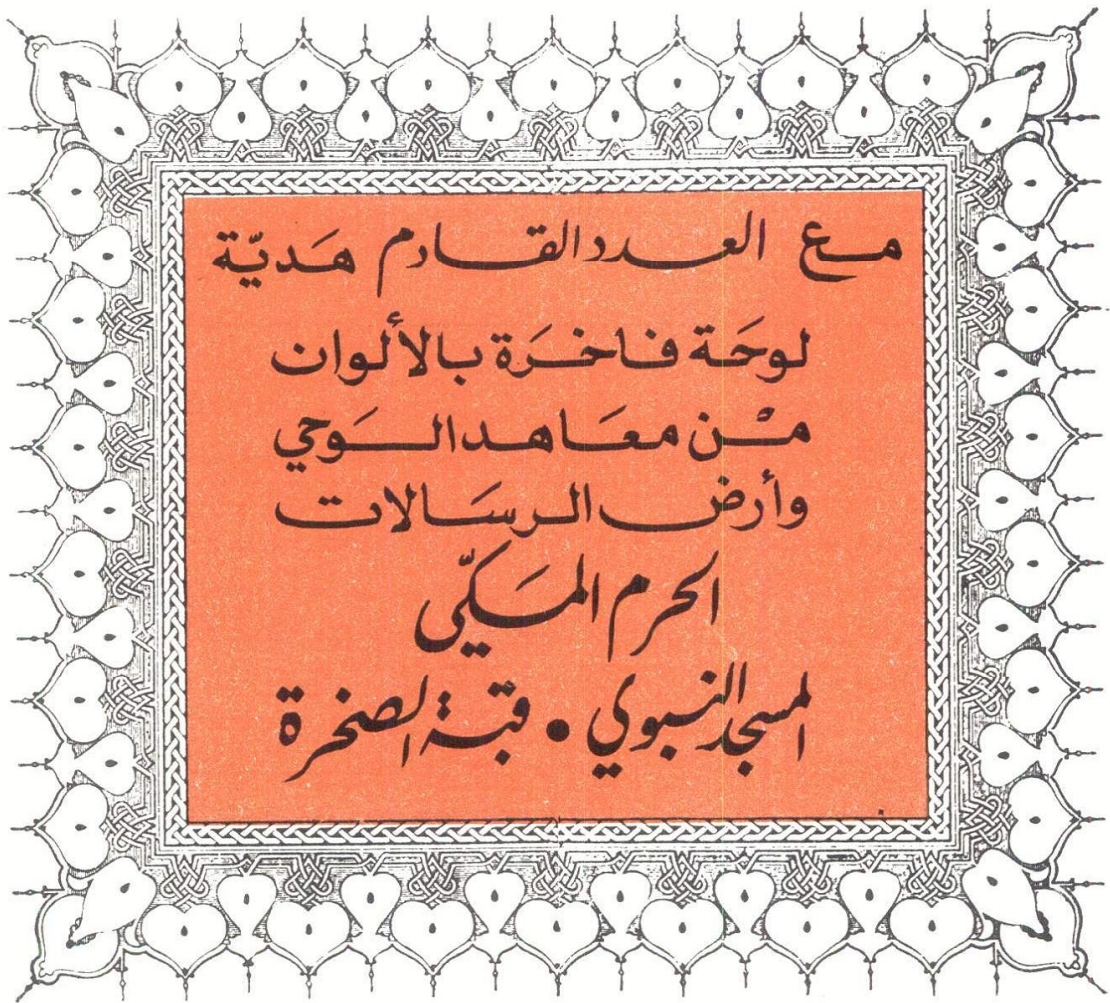 مـع العـدد القـادم هَـديّة
لوحَـة فـاخـرَة بـالألوان
مـْن معَـاهـد الـوَحي
وأرض الـرسَـالات
الحرم المكَيّ
المسجد النبوي • قبة الصخرة